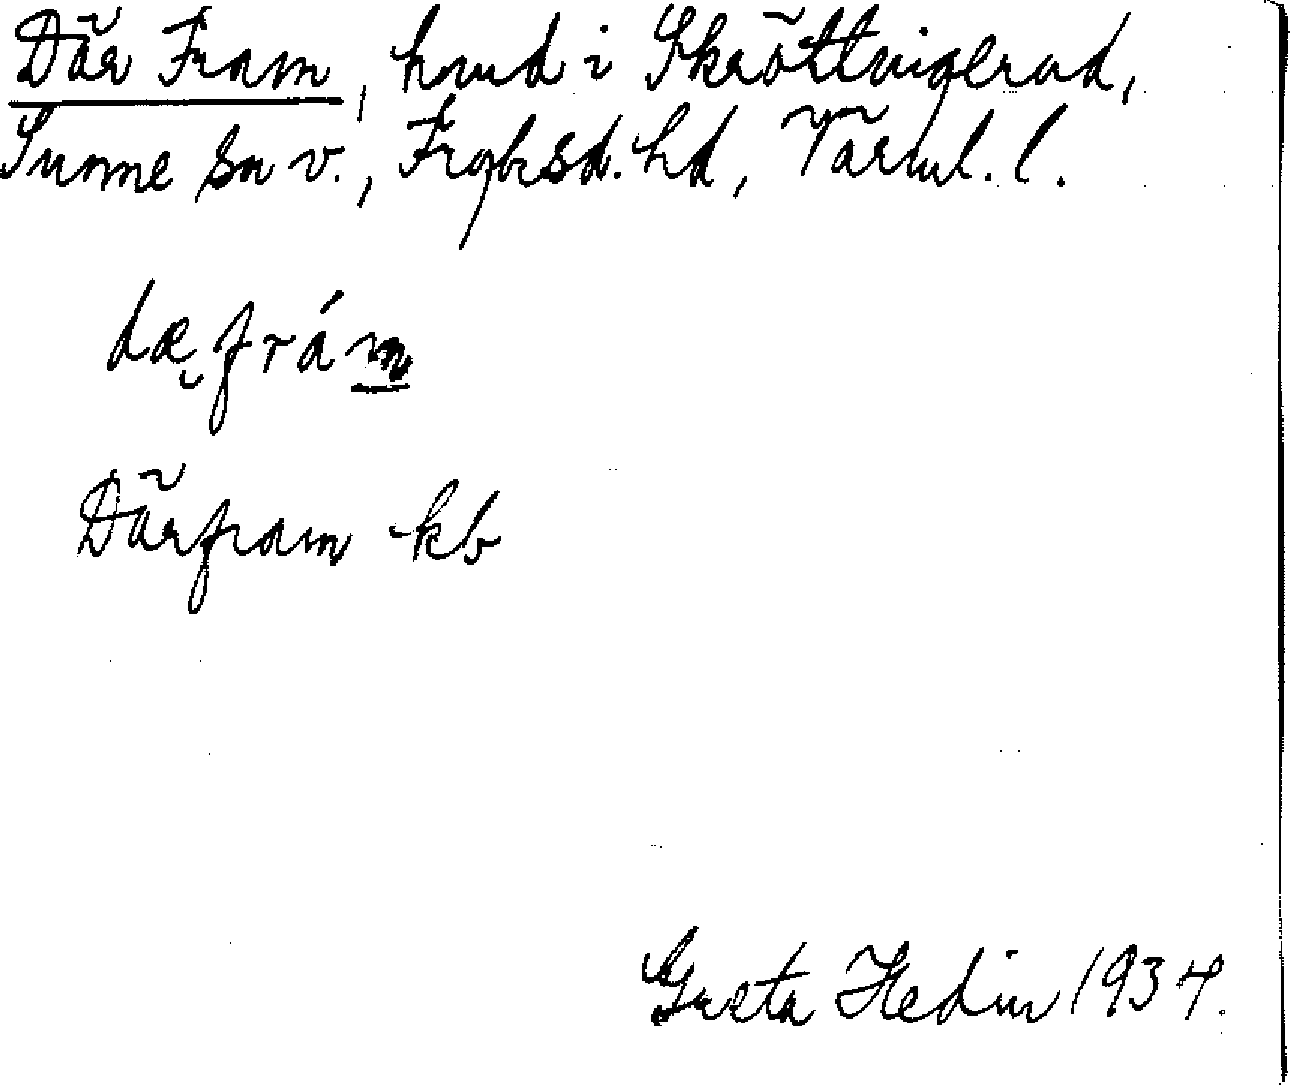 Där Fram, hmd i Skröttvigerud,
Sunne sn v., Fryksd. hd, Värml. l.
dæ̨frám̲
Därfram kb
Greta Hedin 1934.